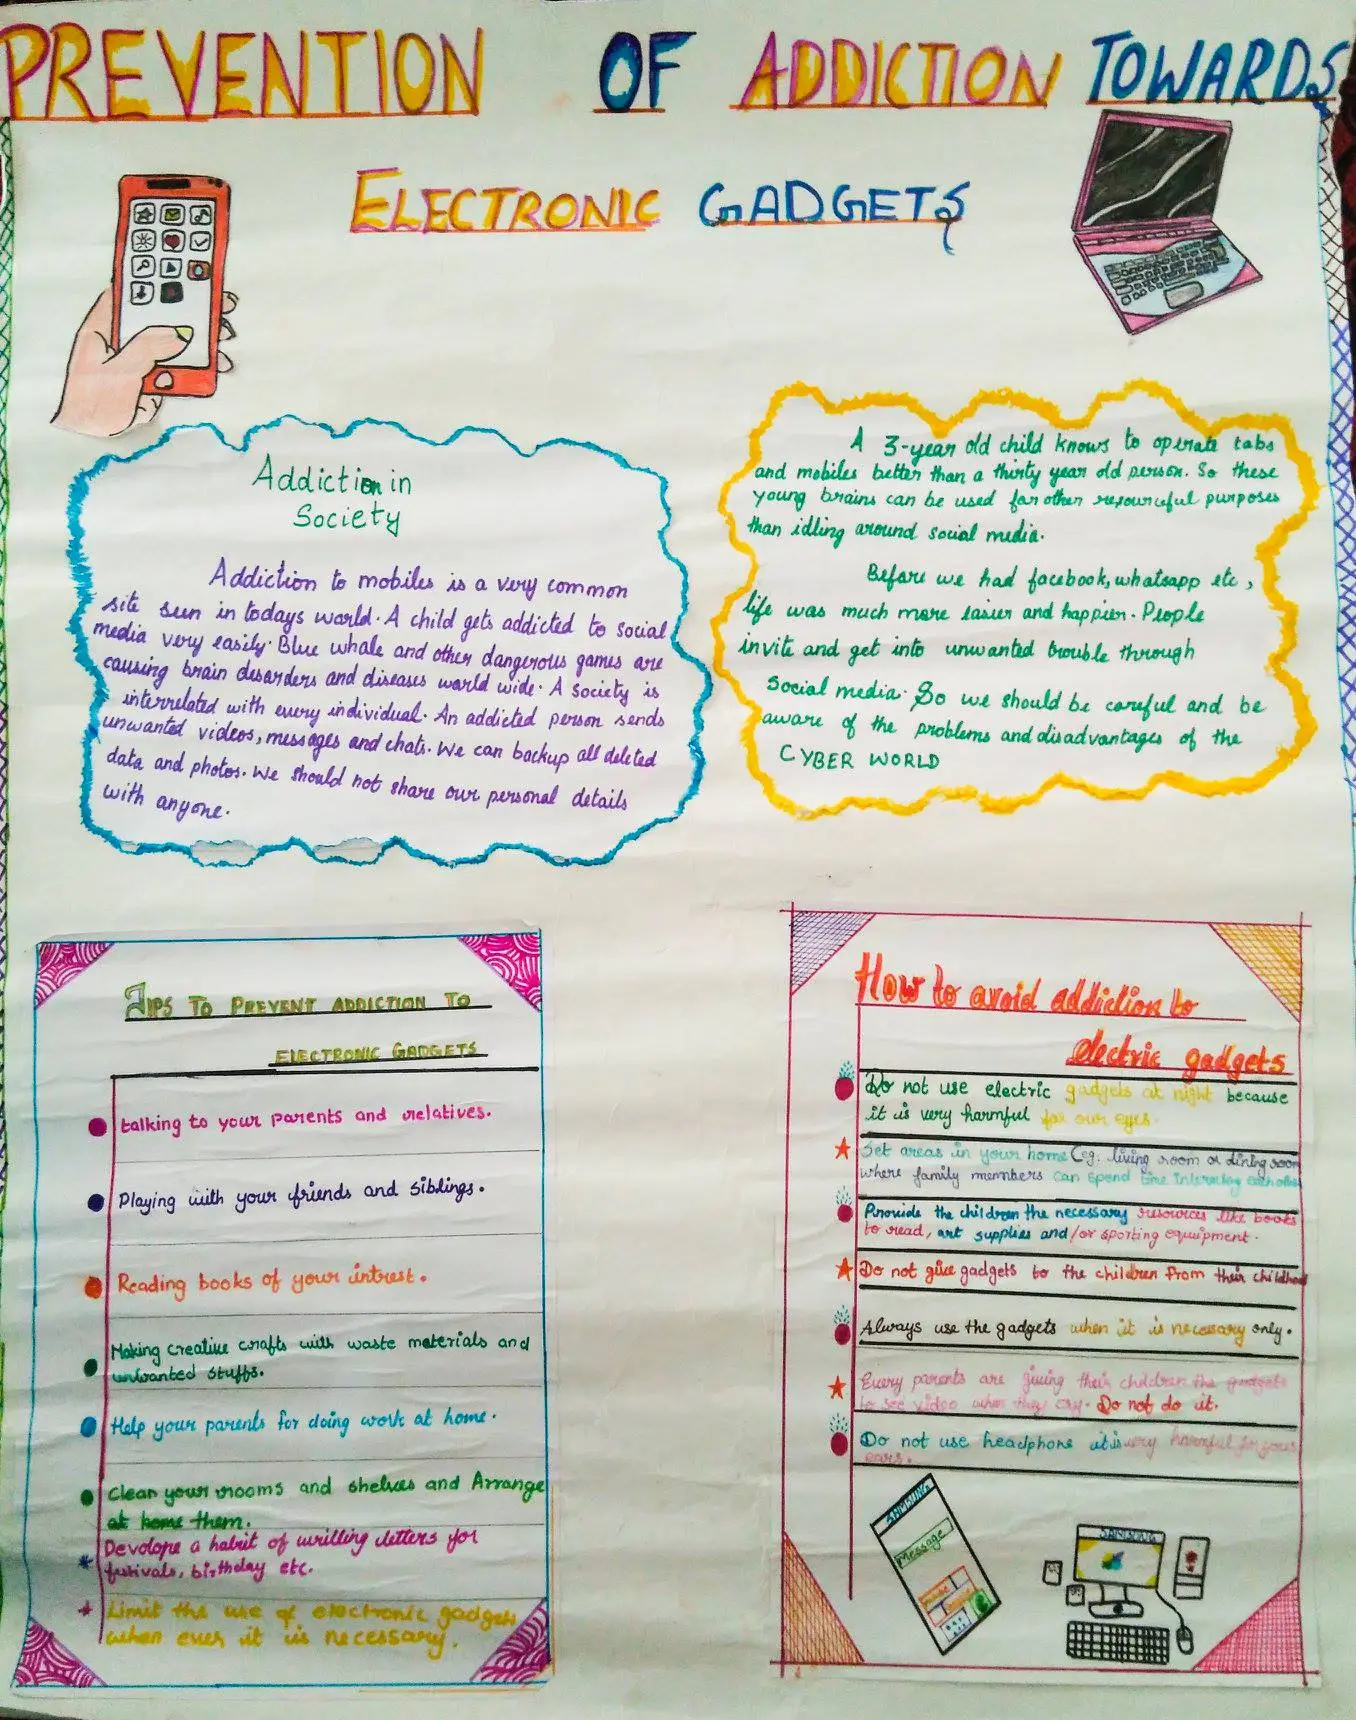 PREVENTION OF ADDICTION TOWARDS
ELECTRONIC GADGETS
Addiction in
Society
Addiction to mobiles is a very common
site seen in todays world. A child gets addicted to social
media very easily. Blue whale and other dangerous games are
causing brain desarders and diseases world wide. A society is
interrelated with every individual. An addicted person sends
unwanted videos, messages and chats. We can backup all deleted
data and photos. We should not share our personal details
with anyone.
A 3-year old child knows to operate tabs
and mobiles better than a thirty year old person. So these
young brains can be used for other resourceful purposes
than idling around social media.
Before we had facebook, whatsapp etc,
life was much more easier and happier. People
invite and get into unwanted trouble through
social media. So we should be careful and be
aware of the problems and disadvantages of the
CYBER WORLD
TIPS TO PREVENT ADDICTION TO
ELECTRONIC GADGETS
talking to your parents and relatives.
Playing with your friends and siblings.
Reading books of your intrest.
Making creative crafts with waste materials and
unwanted stuffs.
Help your parents for doing work at home.
Clean your rooms and shelves and Arrange
at home them.
Devolope a habit of writting letters for
festivals, birthday etc.
Limit the use of electronic gadgets
when ever it is necessary.
How to avoid addiction to
electric gadgets
Do not use electric gadgets at night because
it is very harmful for our eyes.
Set areas in your home (eg. living room or dining room
where family members can spend time
Provide the children the necessary resources like books
to read, art supplies and/or sporting equipment.
Do not give gadgets to the children from their childhood
Always use the gadgets when it is necessary only.
Every parents are giving their children the gadgets
to see video when they cry. Do not do it.
Do not use headphone it is very harmful for your
ears.
SAMSUNG
Message
SAMSUNG